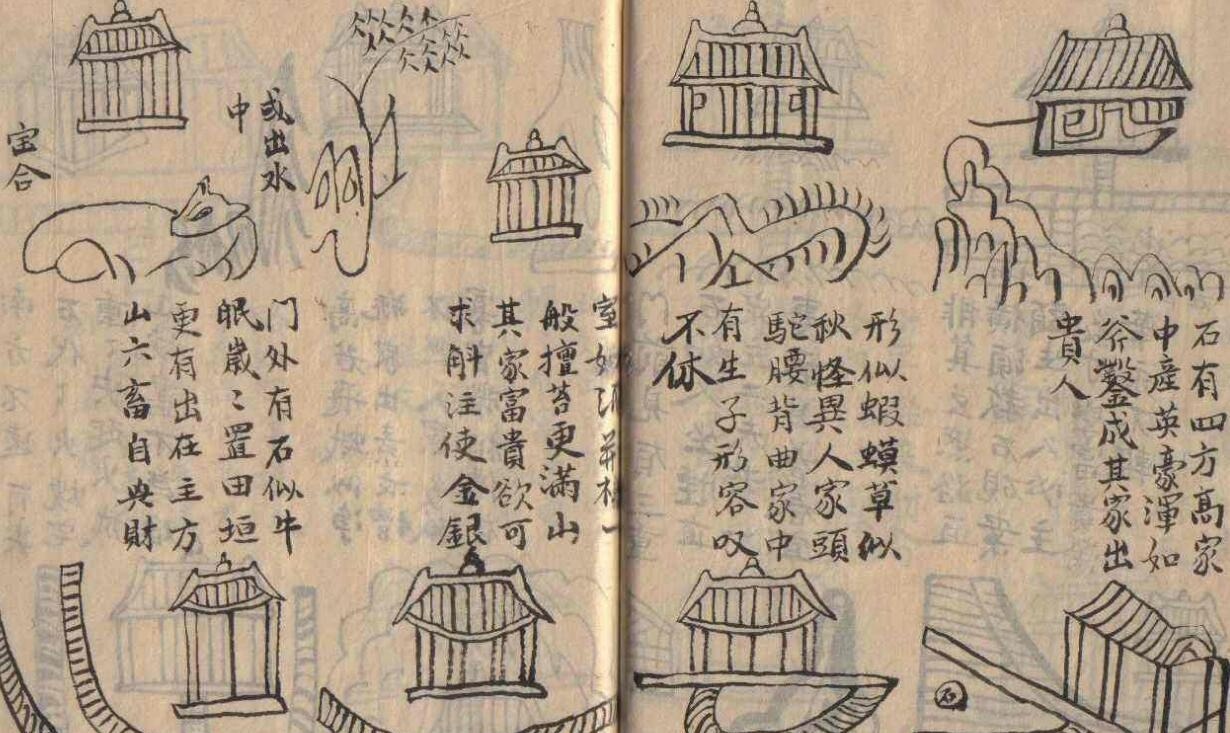 石有四方高家
中產英豪渾如
斧鑿成其家出
貴人
形似蝦蟆草似
秋怪異人家頭
駝腰背曲家中
有生子形容叹
不休
室如
般擅苔更满山
其家富貴欲可
求斛注使金銀
或出水
中
门外有石似牛
眠歲〻置田垣
更有出在主方
山六畜自典財
宝合
石